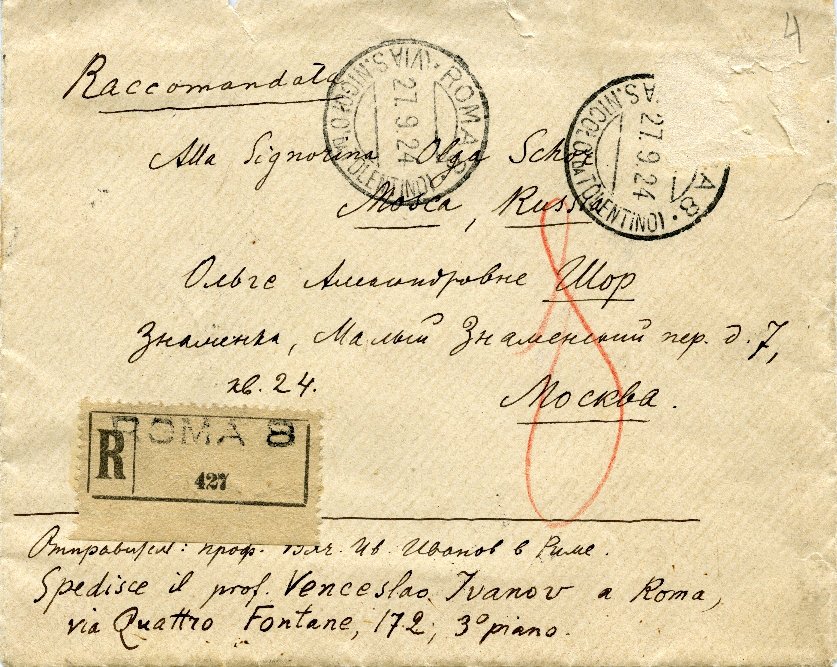 4
Raccomandata
ROMA 8 (VIA S. NICOLO DA TOLENTINO)
27.9.24
A 8 A S. NICOLO DA TOLENTINO)
27.9.24
Alla Signorina Olga Schor
Mosca, Russia
Ольге Александровне Шор
Знаменка, Малый Знаменский пер. д. 7,
кв. 24.
Москва.
8
R
ROMA 8
427
Отправител: проф. Вяч. Ив. Иванов в Риме.
Spedisce il prof. Venceslao Ivanov a Roma,
via Quattro Fontane, 172, 3º piano.